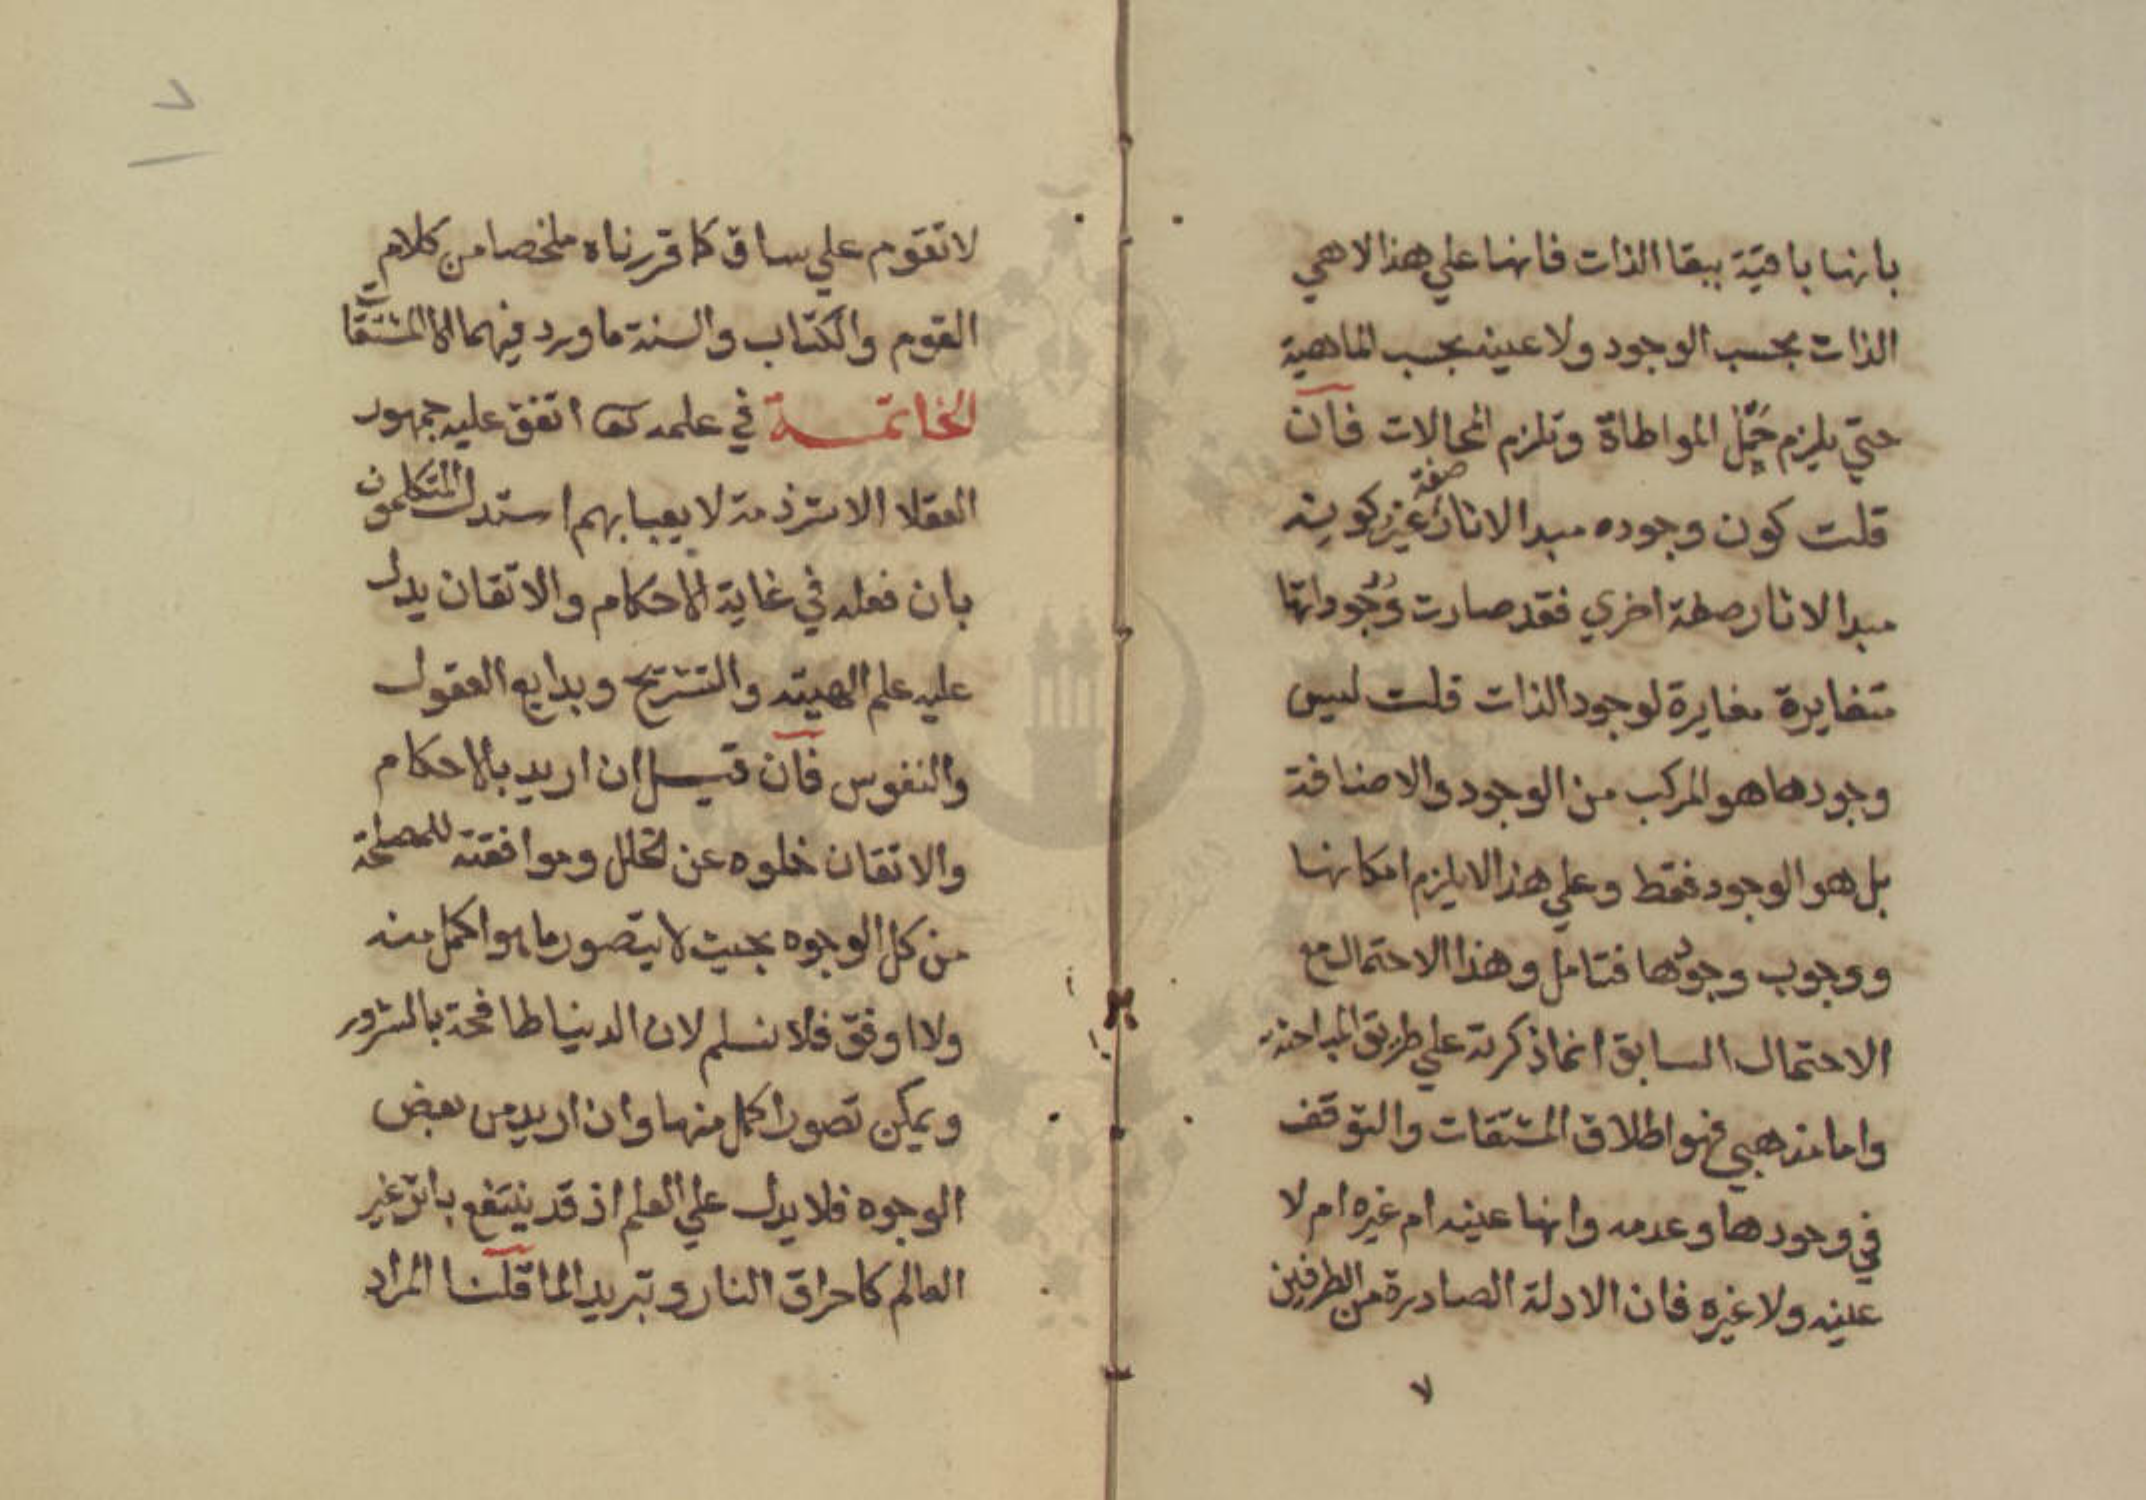 بانها باقية ببقا الذات فانها علي هذا لا هي
الذات بحسب الوجود ولا عينه بحسب الماهية
حتي يلزم حمل المواطاة وتلزم المحالات فان
قلت كون وجوده مبدا لاثار صفة غير كونه
مبدا لاثار صفة اخري فقد صارت وجوداتها
متغايرة مغايرة لوجود الذات قلت ليس
وجودها هو المركب من الوجود والاضافة
بل هو الوجود فقط وعلي هذا لا يلزم امكانها
ووجوب وجودها فتامل وهذا الاحتمال مع
الاحتمال السابق انما ذكرته علي طريق المباحثة
واما مذهبي فهو اطلاق المشتقات والتوقف
في وجودها وعدمه وانها عينه ام غيره ام لا
عينه ولا غيره فان الادلة الصادرة من الطرفين
٧
٧
لا تقوم علي ساق كما قررناه ملخصا من كلام
القوم والكتاب والسنة ما ورد فيهما الا المشتقات
الخاتمة في علمه تعا اتفق عليه جمهور
العقلا الا شرذمة لا يعبا بهم استدل المتكلمون
بان فعله في غاية الاحكام والاتقان يدل
عليه علم الهيئة والتشريح وبدايع العقول
والنفوس فان قيل ان اريد بالاحكام
والاتقان خلوه عن الخلل وموافقته للمصلحة
من كل الوجوه بحيث لا يتصور ما هو اكمل منه
ولا اوفق فلا نسلم لان الدنيا طافحة بالشرور
ويمكن تصور اكمل منها وان اريد من بعض
الوجوه فلا يدل علي العلم اذ قد ينتفع باثر غير
العالم كاحراق النار وتبريد الما قلنا المراد